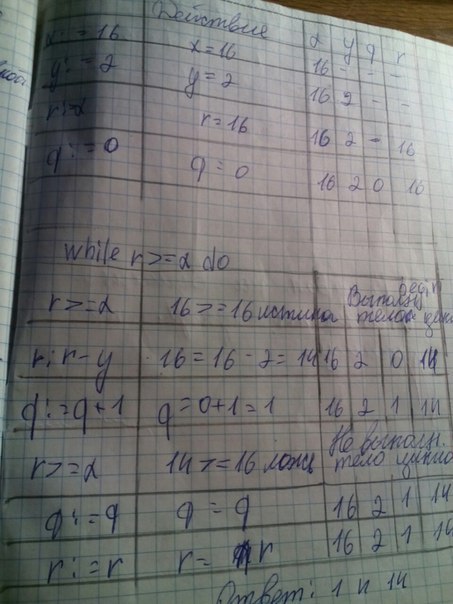 Действие x y q r
x:=16 x=16 16 - - -
y:=2 y=2 16 2 - -
r:=x r=16 16 2 - 16
q:=0 q=0 16 2 0 16
while r>=x do
r>=x 16>=16 истина Выполн. тело цикла
r:r-y 16=16-2=14 16 2 0 14
q:=q+1 q=0+1=1 16 2 1 14
r>=x 14>=16 ложь Не выполн. тело цикла
q:=q q=q 16 2 1 14
r:=r r=r 16 2 1 14
Ответ: 1 и 14